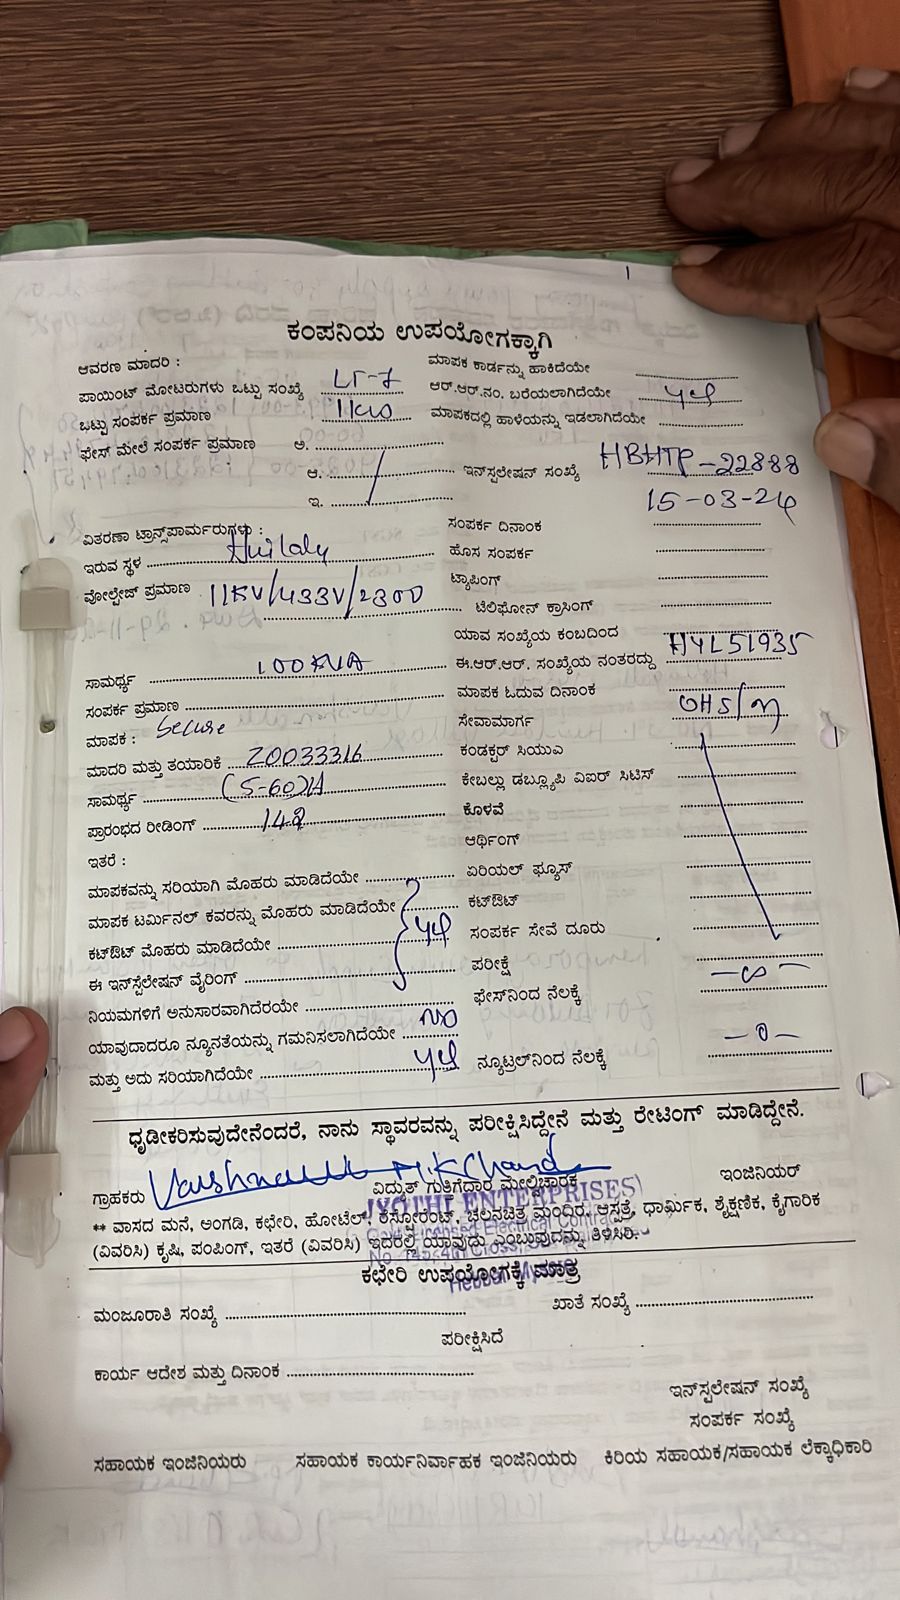 1
ಕಂಪನಿಯ ಉಪಯೋಗಕ್ಕಾಗಿ
ಆವರಣ ಮಾದರಿ :
ಮಾಪಕ ಕಾರ್ಡನ್ನು ಹಾಕಿದೆಯೇ
ಪಾಯಿಂಟ್ ಮೋಟರುಗಳು ಒಟ್ಟು ಸಂಖ್ಯೆ LT-7
ಆರ್.ಆರ್.ನಂ. ಬರೆಯಲಾಗಿದೆಯೇ yes
ಒಟ್ಟು ಸಂಪರ್ಕ ಪ್ರಮಾಣ 11KW
ಮಾಪಕದಲ್ಲಿ ಹಾಳೆಯನ್ನು ಇಡಲಾಗಿದೆಯೇ
ಫೇಸ್ ಮೇಲೆ ಸಂಪರ್ಕ ಪ್ರಮಾಣ ಅ.
ಆ.
ಇನ್‌ಸ್ಪಲೇಷನ್ ಸಂಖ್ಯೆ HBHTP-22888
ಇ.
15-03-24
ವಿತರಣಾ ಟ್ರಾನ್ಸ್‌ಪಾರ್ಮರುಗಳು :
ಸಂಪರ್ಕ ದಿನಾಂಕ
ಇರುವ ಸ್ಥಳ
ಹೊಸ ಸಂಪರ್ಕ
ವೋಲ್ಟೇಜ್ ಪ್ರಮಾಣ 11KV/433V/230D
ಟ್ಯಾಪಿಂಗ್
ಟೆಲಿಫೋನ್ ಕ್ರಾಸಿಂಗ್
ಯಾವ ಸಂಖ್ಯೆಯ ಕಂಬದಿಂದ
ಸಾಮರ್ಥ್ಯ 100KVA
ಈ.ಆರ್.ಆರ್. ಸಂಖ್ಯೆಯ ನಂತರದ್ದು HYL51935
ಸಂಪರ್ಕ ಪ್ರಮಾಣ
ಮಾಪಕ ಓದುವ ದಿನಾಂಕ
ಮಾಪಕ : Secure
ಸೇವಾಮಾರ್ಗ
ಮಾದರಿ ಮತ್ತು ತಯಾರಿಕೆ 20033316
ಕಂಡಕ್ಟರ್ ಸಿಯುವಿ
ಸಾಮರ್ಥ್ಯ (5-60)A
ಕೇಬಲ್ಲು ಡಬ್ಲ್ಯೂಪಿ ವಿಐರ್ ಸಿಟಿಸ್
ಪ್ರಾರಂಭದ ರೀಡಿಂಗ್
ಕೊಳವೆ
ಇತರೆ :
ಆರ್ಥಿಂಗ್
ಮಾಪಕವನ್ನು ಸರಿಯಾಗಿ ಮೊಹರು ಮಾಡಿದೆಯೇ
ಏರಿಯಲ್ ಫ್ಯೂಸ್
ಮಾಪಕ ಟರ್ಮಿನಲ್ ಕವರನ್ನು ಮೊಹರು ಮಾಡಿದೆಯೇ
ಕಟ್‌ಔಟ್
ಕಟ್‌ಔಟ್ ಮೊಹರು ಮಾಡಿದೆಯೇ yes
ಸಂಪರ್ಕ ಸೇವೆ ದೂರು
ಈ ಇನ್‌ಸ್ಟೆಲೇಷನ್ ವೈರಿಂಗ್
ಪರೀಕ್ಷೆ
ನಿಯಮಗಳಿಗೆ ಅನುಸಾರವಾಗಿದೆರಯೇ
ಫೇಸ್‌ನಿಂದ ನೆಲಕ್ಕೆ -∞-
ಯಾವುದಾದರೂ ನ್ಯೂನತೆಯನ್ನು ಗಮನಿಸಲಾಗಿದೆಯೇ NO
ಮತ್ತು ಅದು ಸರಿಯಾಗಿದೆಯೇ yes
ನ್ಯೂಟ್ರಲ್‌ನಿಂದ ನೆಲಕ್ಕೆ -0-
ಧೃಡೀಕರಿಸುವುದೇನೆಂದರೆ, ನಾನು ಸ್ಥಾವರವನ್ನು ಪರೀಕ್ಷಿಸಿದ್ದೇನೆ ಮತ್ತು ರೇಟಿಂಗ್ ಮಾಡಿದ್ದೇನೆ.
ಗ್ರಾಹಕರು
ವಿದ್ಯುತ್ ಗುತ್ತಿಗೆದ್ದಾರ ಮೇಲ್ವಿಚಾರಕ
ಇಂಜಿನಿಯರ್
JYOTHI ENTERPRISES
** ವಾಸದ ಮನೆ, ಅಂಗಡಿ, ಕಛೇರಿ, ಹೋಟೆಲ್, ರೆಸ್ಟೋರೆಂಟ್, ಚಲನಚಿತ್ರ ಮಂದಿರ, ಆಸ್ಪತ್ರೆ, ಧಾರ್ಮಿಕ, ಶೈಕ್ಷಣಿಕ, ಕೈಗಾರಿಕ
(ವಿವರಿಸಿ) ಕೃಷಿ, ಪಂಪಿಂಗ್, ಇತರೆ (ವಿವರಿಸಿ) ಇದರಲ್ಲಿ ಯಾವುದು ಎಂಬುವುದನ್ನು ತಿಳಿಸಿರಿ.
ಕಛೇರಿ ಉಪಯೋಗಕ್ಕೆ ಮಾತ್ರ
ಮಂಜೂರಾತಿ ಸಂಖ್ಯೆ
ಖಾತೆ ಸಂಖ್ಯೆ
ಪರೀಕ್ಷಿಸಿದೆ
ಕಾರ್ಯ ಆದೇಶ ಮತ್ತು ದಿನಾಂಕ
ಇನ್‌ಸ್ಪಲೇಷನ್ ಸಂಖ್ಯೆ
ಸಂಪರ್ಕ ಸಂಖ್ಯೆ
ಸಹಾಯಕ ಇಂಜಿನಿಯರು
ಸಹಾಯಕ ಕಾರ್ಯನಿರ್ವಾಹಕ ಇಂಜಿನಿಯರು
ಕಿರಿಯ ಸಹಾಯಕ/ಸಹಾಯಕ ಲೆಕ್ಕಾಧಿಕಾರಿ